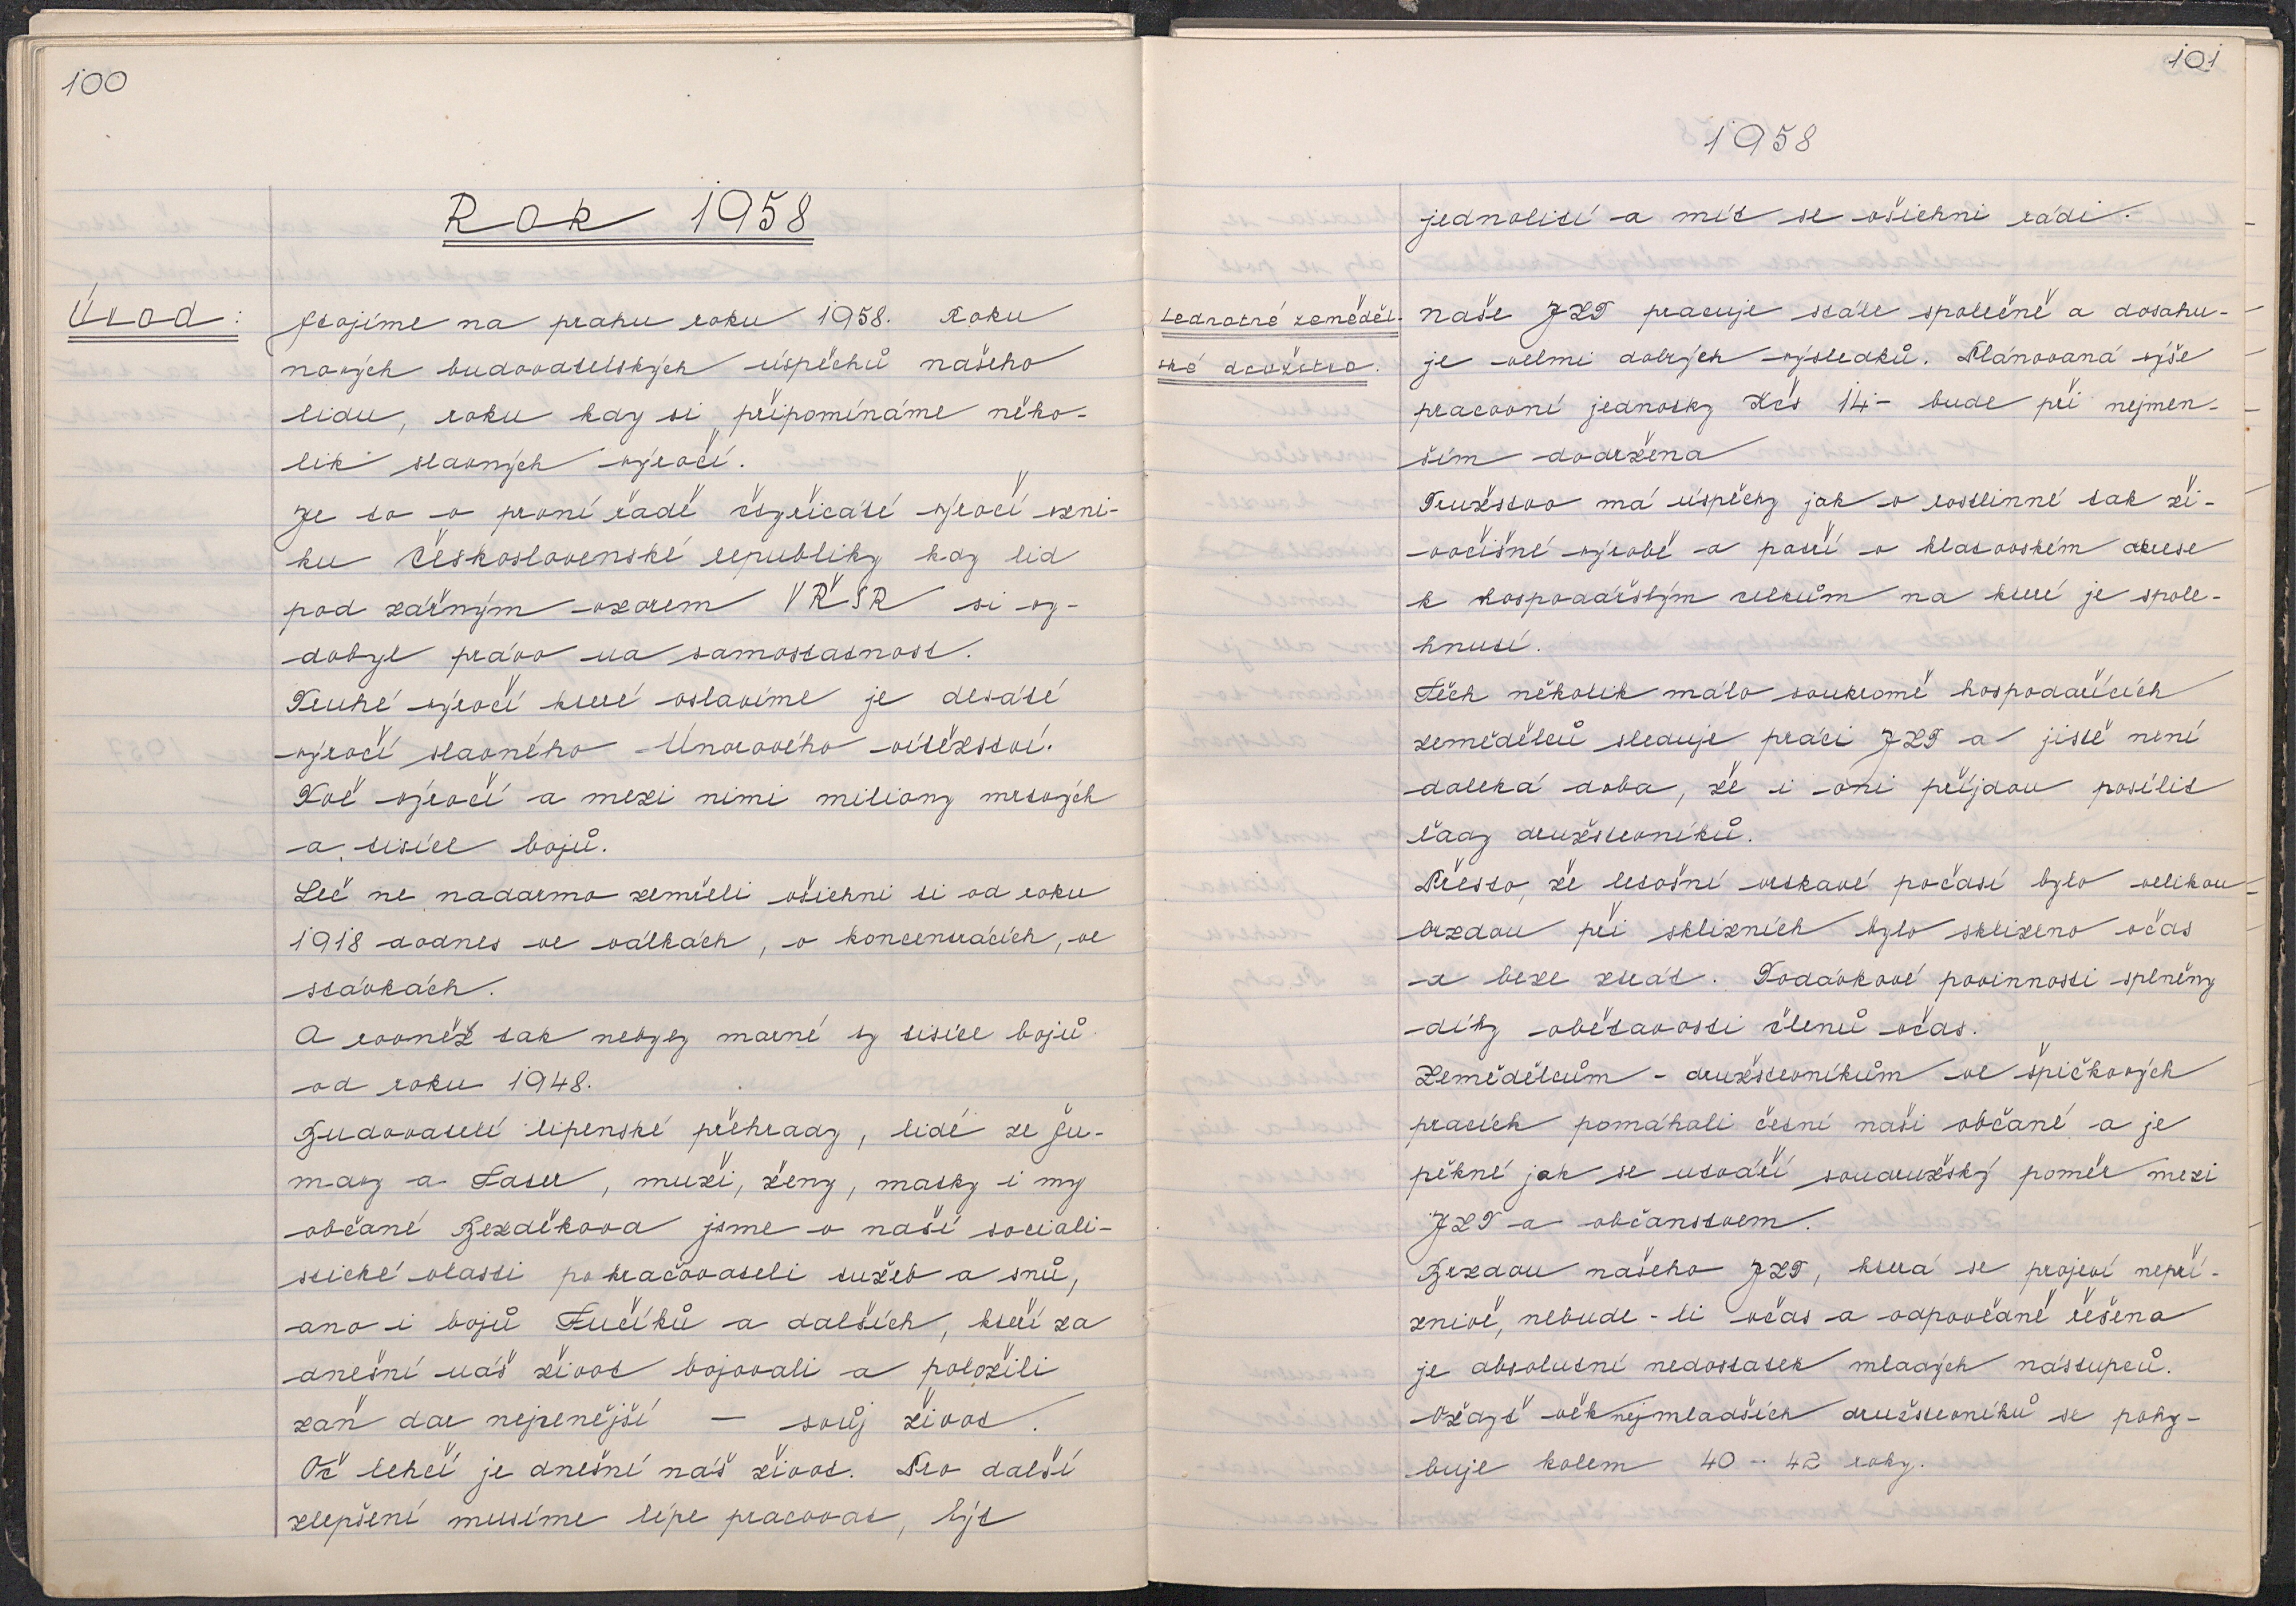 100
Rok 1958
Úvod:
Stojíme na prahu roku 1958. Roku
nových budovatelských úspěchů našeho
lidu, roku kdy si připomínáme něko-
lik slavných výročí.
Je to v první řadě čtyřicáté výročí vzni-
ku Československé republiky kdy lid
pod zářným vzorem VŘSR si vy-
dobyl právo na samostatnost.
Druhé výročí které oslavíme je desáté
výročí slavného Únorového vítězství.
Dvě výročí a mezi nimi miliony mrtvých
a tisíce bojů.
Leč ne nadarmo zemřeli všichni ti od roku
1918 dodnes ve válkách, v koncentracích, ve
stávkách.
A rovněž tak nebyly marné ty tisíce bojů
od roku 1948.
Budovatelé lipenské přehrady, lidé ze Šu-
mavy a Tater, muži, ženy, matky i my
občané Bezděkova jsme v naší sociali-
stické vlasti pokračovateli tužeb a snů,
ano i bojů Fučíků a dalších, kteří za
dnešní náš život bojovali a položili
zaň dar nejcenější — svůj život.
Oč lehčí je dnešní náš život. Pro další
zlepšení musíme lépe pracovat, být
101
1958
jednolití a mít se všichni rádi.
Jednotné zeměděl-
ské družstvo.
naše JZD pracuje stále společně a dosahu-
je velmi dobrých výsledků. Plánovaná výše
pracovní jednotky Kčs 14- bude při nejmen-
ším dodržena
Družstvo má úspěchy jak v rostlinné tak ži-
vočišné výrobě a patří v klatovském okrese
k hospodářským celkům na které je spole-
hnutí.
Těch několik málo soukromě hospodařících
zemědělců sleduje práci JZD a jistě není
daleká doba, že i oni příjdou posílit
řady družstevníků.
Přesto, že letošní vrtkavé počasí bylo velikou
brzdou při sklizních bylo sklizeno včas
a beze ztrát. Dodávkové povinnosti splněny
díky obětavosti členů včas.
Zemědělcům - družstevníkům ve špičkových
pracích pomáhali četní naši občané a je
pěkné jak se utváří soudružský poměr mezi
JZD a občanstvem.
Brzdou našeho JZD, která se projeví nepří-
znivě, nebude-li včas a odpovědně řešena
je absolutní nedostatek mladých nástupců.
Vždyť věk nejmladších družstevníků se pohy-
buje kolem 40 - 42 roky.